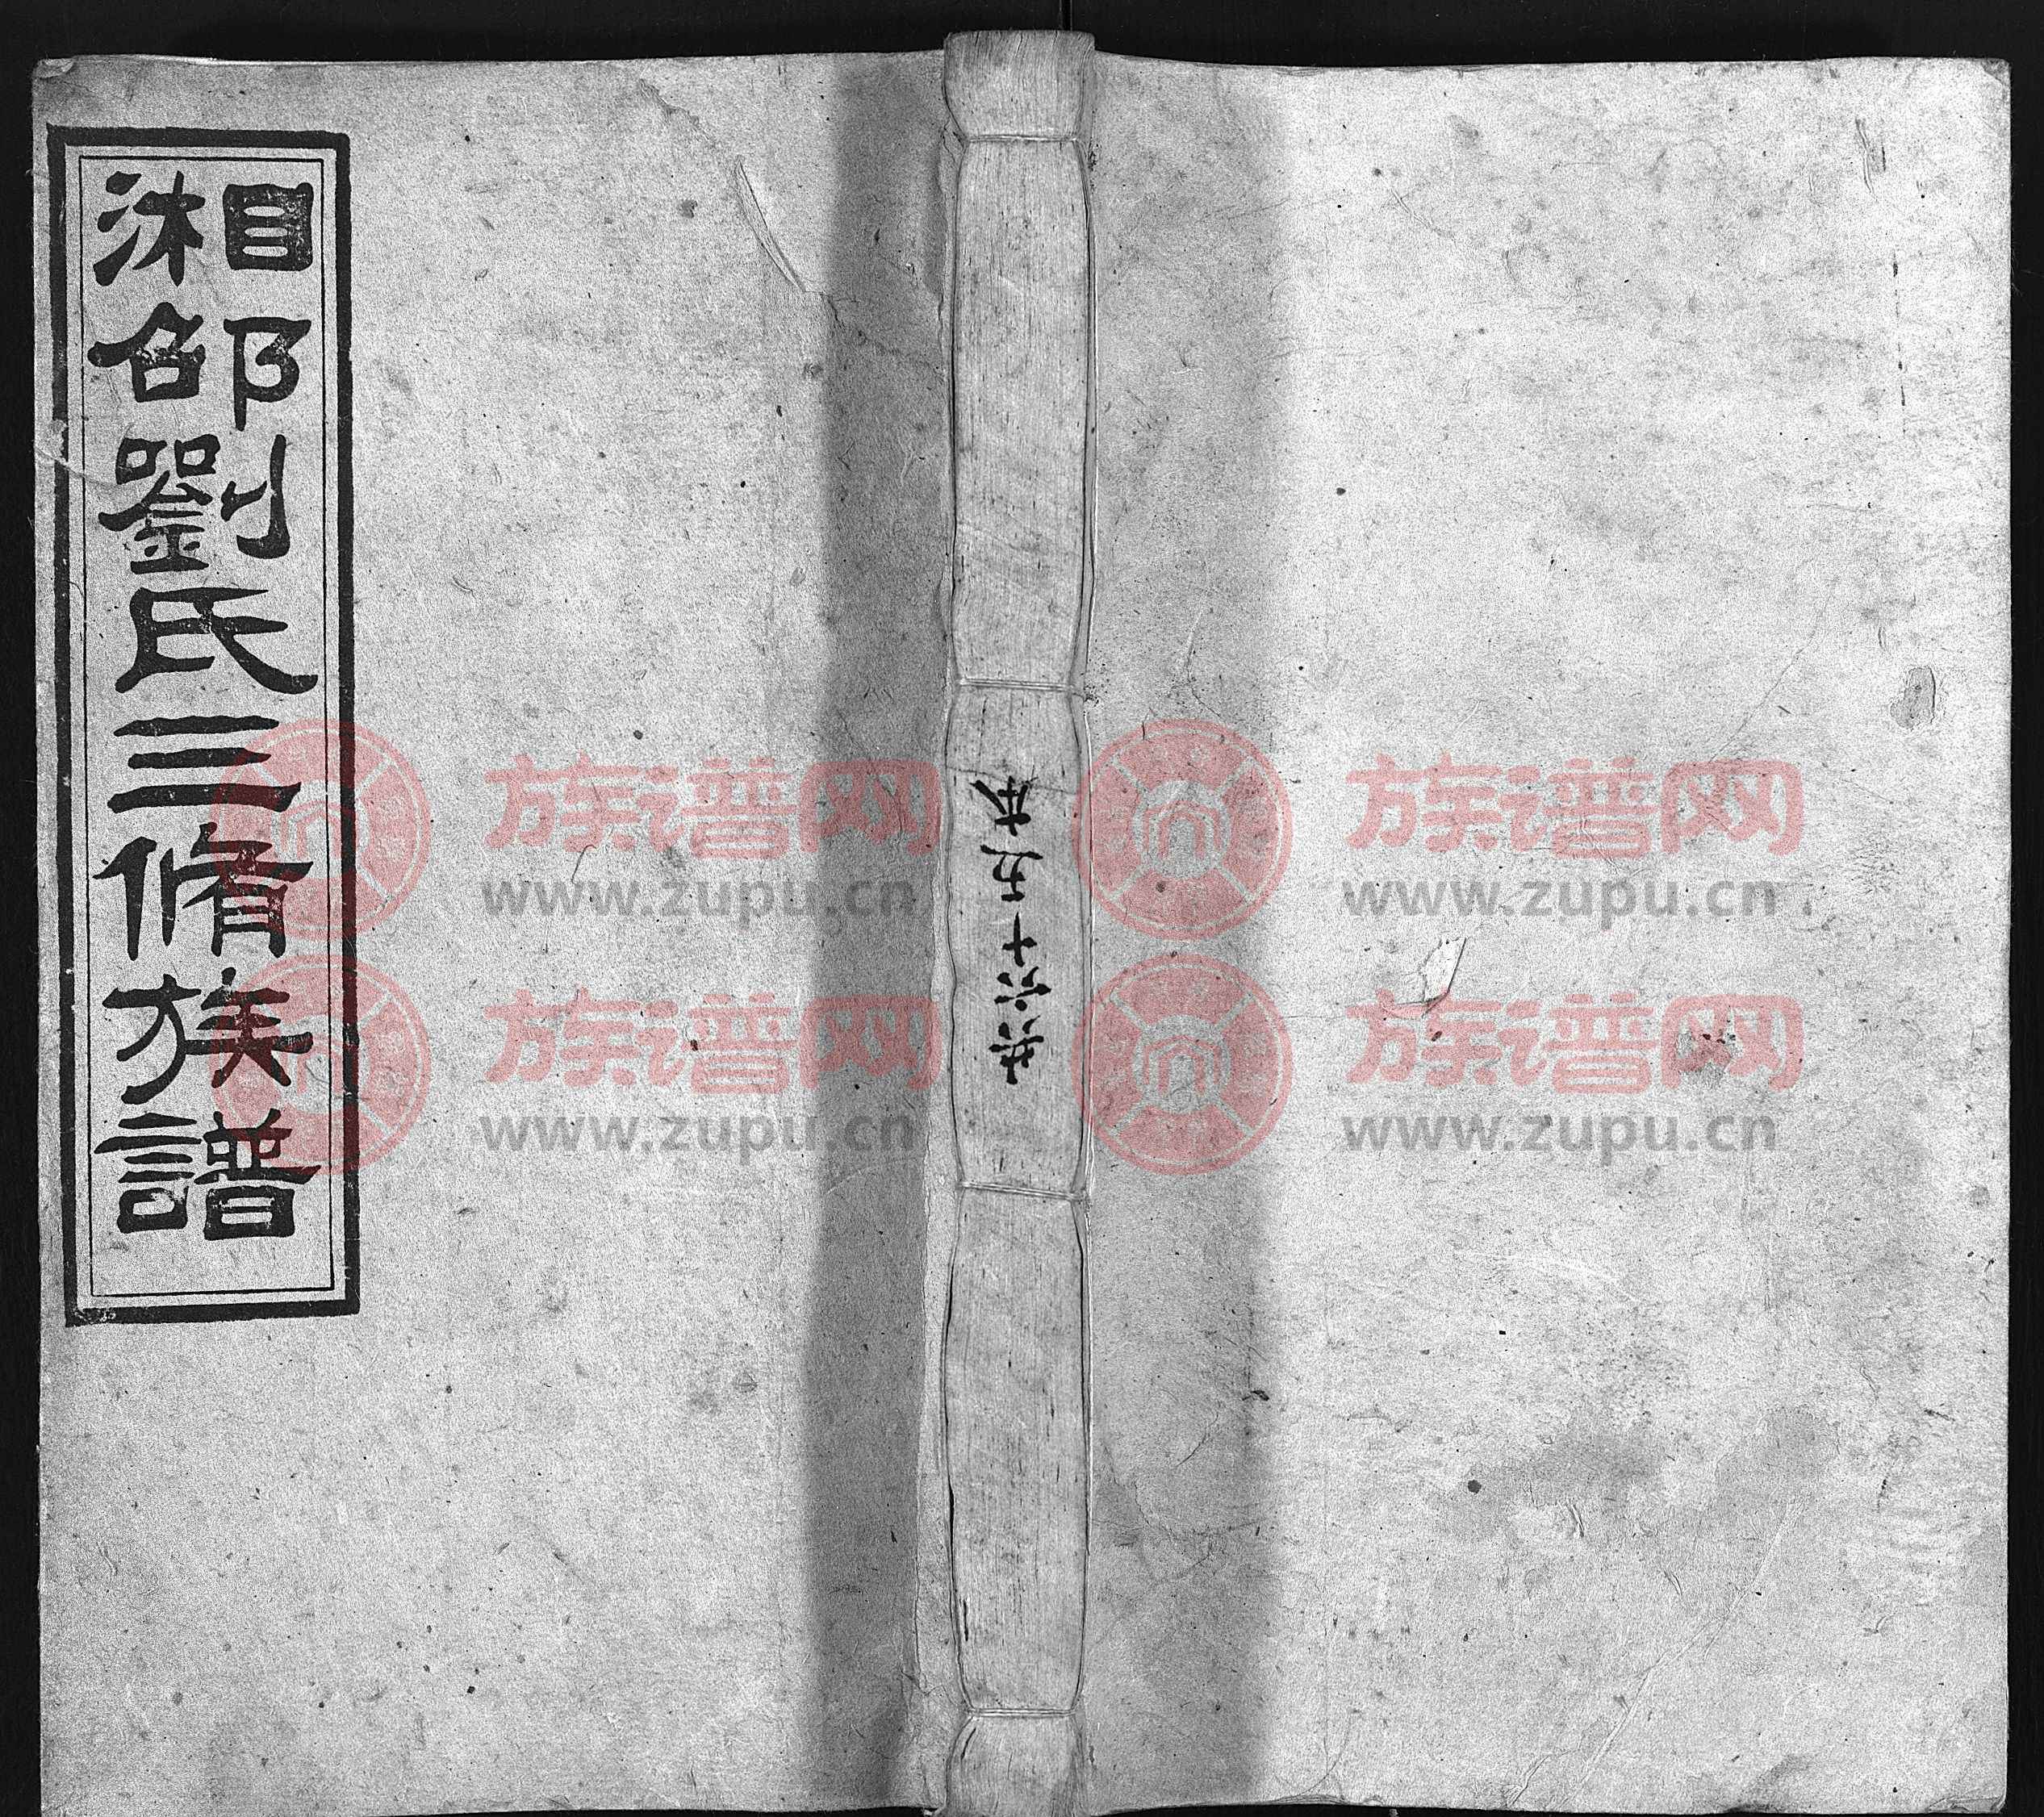 湘邵劉氏三脩族譜
第六十五本
族谱网 族谱网
www.zupu.cn www.zupu.cn
族谱网 族谱网
www.zupu.cn www.zupu.cn